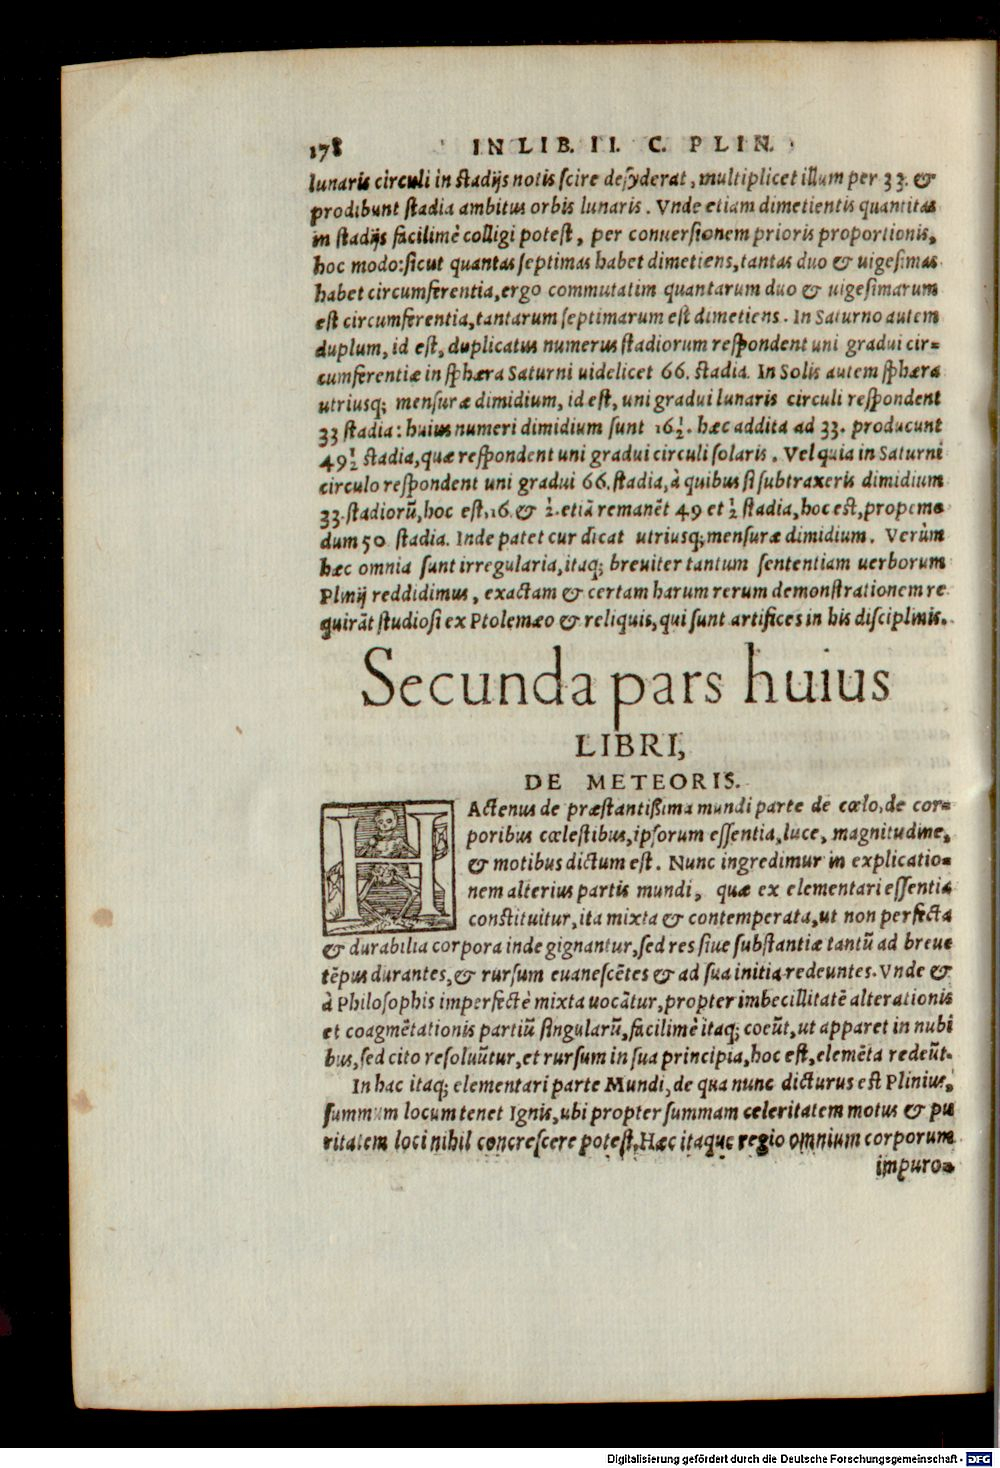 178 IN LIB. II. C. PLIN.
lunaris circuli in stadijs notis scire desyderat, multiplicet illum per 33. &
prodibunt stadia ambitus orbis lunaris. Vnde etiam dimetientis quantitas
in stadijs facilimè colligi potest, per conuersionem prioris proportionis,
hoc modo: sicut quantas septimas habet dimetiens, tantas duo & uigesimas
habet circumferentia, ergo commutatim quantarum duo & uigesimarum
est circumferentia, tantarum septimarum est dimetiens. In Saturno autem
duplum, id est, duplicatus numerus stadiorum respondent uni gradui cir-
cumferentiæ in sphæra Saturni uidelicet 66. stadia. In Solis autem sphæra
utriusq; mensuræ dimidium, id est, uni gradui lunaris circuli respondent
33 stadia: huius numeri dimidium sunt 16 ½. hæc addita ad 33. producunt
49 ½ stadia, quæ respondent uni gradui circuli solaris. Vel quia in Saturni
circulo respondent uni gradui 66. stadia, à quibus si subtraxeris dimidium
33. stadiorũ, hoc est, 16. & ½. etiã remanẽt 49 et ½ stadia, hoc est, propemo
dum 50 stadia. Inde patet cur dicat utriusq; mensuræ dimidium. Verùm
hæc omnia sunt irregularia, itaq; breuiter tantum sententiam uerborum
Plinij reddidimus, exactam & certam harum rerum demonstrationem re
quirãt studiosi ex Ptolemæo & reliquis, qui sunt artifices in his disciplinis.
Secunda pars huius
LIBRI,
DE METEORIS.
HActenus de præstantißima mundi parte de cœlo, de cor-
poribus cœlestibus, ipsorum essentia, luce, magnitudine,
& motibus dictum est. Nunc ingredimur in explicatio-
nem alterius partis mundi, quæ ex elementari essentia
constituitur, ita mixta & contemperata, ut non perfecta
& durabilia corpora inde gignantur, sed res siue substantiæ tantũ ad breue
tẽpus durantes, & rursum euanescẽtes & ad sua initia redeuntes. Vnde &
à Philosophis imperfectè mixta uocãtur, propter imbecillitatẽ alterationis
et coagmẽtationis partiũ singularũ, facilimè itaq; coeũt, ut apparet in nubi
bus, sed cito resoluũtur, et rursum in sua principia, hoc est, elemẽta redeũt.
In hac itaq; elementari parte Mundi, de qua nunc dicturus est Plinius,
summum locum tenet Ignis, ubi propter summam celeritatem motus & pu
ritatem loci nihil concrescere potest. Hæc itaque regio omnium corporum
impuro-
Digitalisierung gefördert durch die Deutsche Forschungsgemeinschaft - DFG